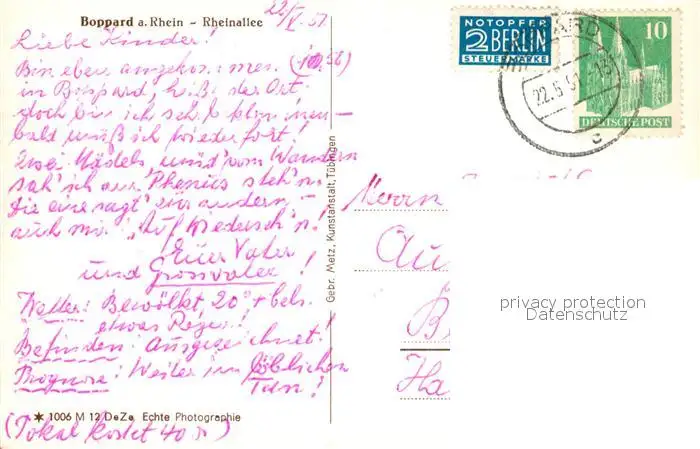 Boppard a. Rhein – Rheinallee
22/V. 51
Liebe Kinder!
Bin eben angekommen
in Boppard, heißt der Ort
doch bin ich schon
bald muß ich wieder fort!
Zwei Mädels vom Wandern
sah' ich am steh'n
die eine sagt' zur andern –
auch mir „Auf Wiederseh'n!
Euer Vater
und Grossvater!
Wetter: Bewölkt, 20° + Cels.
etwas Regen!
Befinden: Ausgezeichnet!
Prognose: Weiter im löblichen
Tun!
✶ 1006 M 12 DeZe Echte Photographie
(Pokal kostet 40 )
Gebr. Metz, Kunstanstalt, Tübingen
NOTOPFER
2 BERLIN
STEUERMARKE
22.5.51
c
10
DEUTSCHE POST
Herrn
Au
B
Ha
privacy protection
Datenschutz